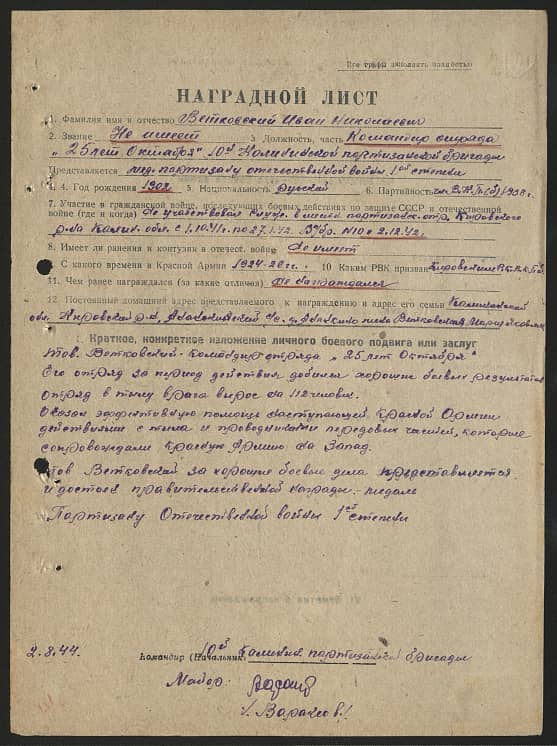 Все графы заполнять полностью
НАГРАДНОЙ ЛИСТ
1. Фамилия имя и отчество Ветковский Иван Николаевич
2. Звание Не имеет 3 Должность, часть Командир отряда
"25 лет Октября" 10й Калининской партизанской бригады
Представляется мед. партизану отечественной войны 1ой степени
4. Год рождения 1902 5. Национальность русский 6. Партийность чл. В.К.П.(б) 1938 г.
7. Участие в гражданской войне, последующих боевых действиях по защите СССР и отечественной
войне (где и когда) Не участвовал партизанск. отр. Кировского
р-на Калин. обл. с 1.10.41. по 27.1.42. В 10 с 2.12.42.
8. Имеет ли ранения и контузии в отечест. войне Не имеет
9. С какого времени в Красной Армии 1924-26 гг. 10 Каким РВК призван Кировским
11. Чем ранее награждался (за какие отличия) Не награждался
12. Постоянный домашний адрес представляемого к награждению и адрес его семьи Калининской
обл. Кировский р-н, с/с. д.
I. Краткое, конкретное изложение личного боевого подвига или заслуг
Тов. Ветковский - командир отряда "25 лет Октября"
Его отряд за период действия добился хороших боевых результатов
отряд в тылу врага вырос до 112 человек.
Оказал эффективную помощь наступающей Красной Армии
действиями с тыла и проводниками передовых частей, которые
сопровождали Красную Армию на Запад.
Тов Ветковский за хорошие боевые дела представляется
и достоен правительственной награды - медаль
Партизану Отечественной войны 1ой степени
2.8.44.
Командир (Начальник) 10й Калинин. партизанской бригады
Майор
/. Вараксов./